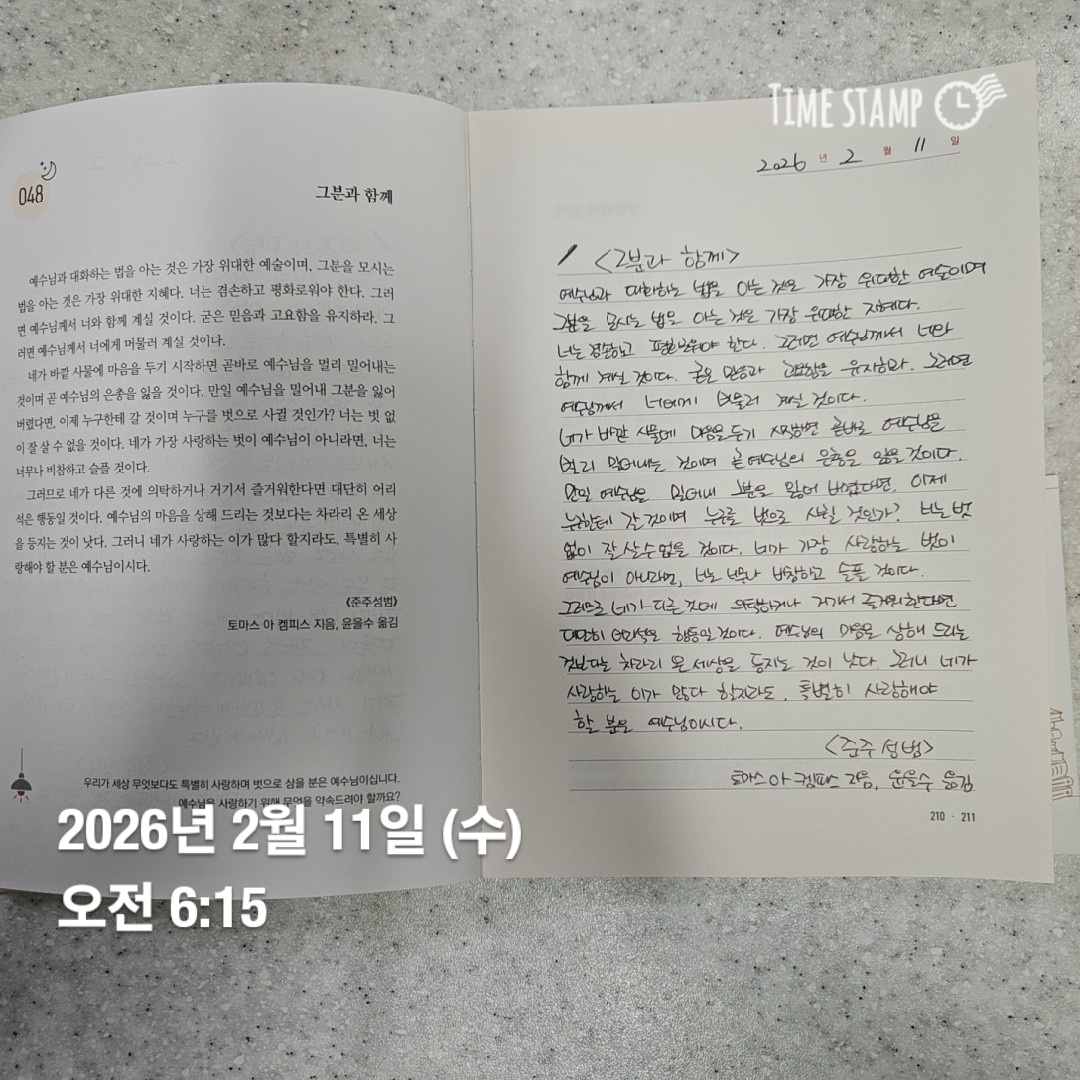 TIME STAMP
048
그분과 함께
예수님과 대화하는 법을 아는 것은 가장 위대한 예술이며, 그분을 모시는
법을 아는 것은 가장 위대한 지혜다. 너는 겸손하고 평화로워야 한다. 그러
면 예수님께서 너와 함께 계실 것이다. 굳은 믿음과 고요함을 유지하라. 그
러면 예수님께서 너에게 머물러 계실 것이다.
네가 바깥 사물에 마음을 두기 시작하면 곧바로 예수님을 멀리 밀어내는
것이며 곧 예수님의 은총을 잃을 것이다. 만일 예수님을 밀어내 그분을 잃어
버렸다면, 이제 누구한테 갈 것이며 누구를 벗으로 사귈 것인가? 너는 벗 없
이 잘 살 수 없을 것이다. 네가 가장 사랑하는 벗이 예수님이 아니라면, 너는
너무나 비참하고 슬플 것이다.
그러므로 네가 다른 것에 의탁하거나 거기서 즐거워한다면 대단히 어리
석은 행동일 것이다. 예수님의 마음을 상해 드리는 것보다는 차라리 온 세상
을 등지는 것이 낫다. 그러니 네가 사랑하는 이가 많다 할지라도, 특별히 사
랑해야 할 분은 예수님이시다.
《준주성범》
토마스 아 켐피스 지음, 윤을수 옮김
우리가 세상 무엇보다도 특별히 사랑하며 벗으로 삼을 분은 예수님이십니다.
예수님을 사랑하기 위해 무엇을 약속드려야 할까요?
2026 년 2 월 11 일
<그분과 함께>
예수님과 대화하는 법을 아는 것은 가장 위대한 예술이며
그분을 모시는 법을 아는 것은 가장 위대한 지혜다.
너는 겸손하고 평화로워야 한다. 그러면 예수님께서 너와
함께 계실 것이다. 굳은 믿음과 고요함을 유지하라. 그러면
예수님께서 너에게 머물러 계실 것이다.
네가 바깥 사물에 마음을 두기 시작하면 곧바로 예수님을
멀리 밀어내는 것이며 곧 예수님의 은총을 잃을 것이다.
만일 예수님을 밀어내 그분을 잃어 버렸다면, 이제
누구한테 갈 것이며 누구를 벗으로 사귈 것인가? 너는 벗
없이 잘 살 수 없을 것이다. 네가 가장 사랑하는 벗이
예수님이 아니라면, 너는 너무나 비참하고 슬플 것이다.
그러므로 네가 다른 것에 의탁하거나 거기서 즐거워한다면
대단히 어리석은 행동일 것이다. 예수님의 마음을 상해 드리는
것보다는 차라리 온 세상을 등지는 것이 낫다. 그러니 네가
사랑하는 이가 많다 할지라도, 특별히 사랑해야
할 분은 예수님이시다.
<준주성범>
토마스 아 켐피스 지음, 윤을수 옮김
210 · 211
2026년 2월 11일 (수)
오전 6:15